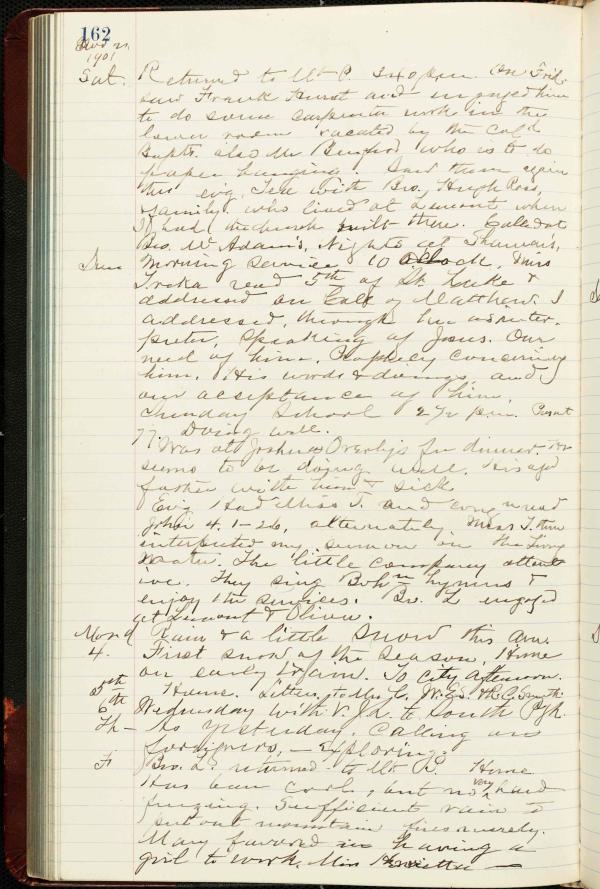 162
Nov 2,
1901
Sat. Returned to Mt P. 3.40 p.m. On Frid.
saw Frank Hurst and engaged him
to do some carpenter work in the
lower room vacated by the Cold
Bapts. also Mr who is to do
paper hanging. Saw them again
this evg. Tea with Bro. Hugh Ross,
& family who lived at Lemont when
I had the church built there. Called at
Bro. Mc Adam's, Nights at
Sun Morning service 10 Oclock, Miss
read 5th of St. Luke &
addressed on Call of Matthew. I
addressed, through her as inter-
preter, Speaking of Jesus. Our
need of him, Prophecy concerning
him, His words & doings, and
our acceptance of him.
Sunday School 2 1/2 p.m. Present
77. Doing well.
Was at Joshua Overly's for dinner. He
seems to be doing well. His aged
father with him & sick
Evg Had Miss T. and cong read
John 4. 1-26, alternately. Miss T. then
interpreted my sermon on the Living
Water. The little company attent
ive. They sing Bohn hymns &
enjoy the services. Bro. L engaged
at Lemont & Oliver.
Mond Rain & a little snow this am.
4. First snow of the Season. Home
on early train. To city afternoon.
5th Home. Letters to Mr C, W.G.S. & R.C. Smith.
6th Wednesday with V. Ja. to South Pgh.
Th - As yesterday. Calling on
foreigners, - Exploring.
F Bro. L. returned to Mt P. Home
Has been cool, but no very hard
freezing. Sufficient rain to
put out mountain fires
Mary favored in having a
girl to work. Miss Henrietta —